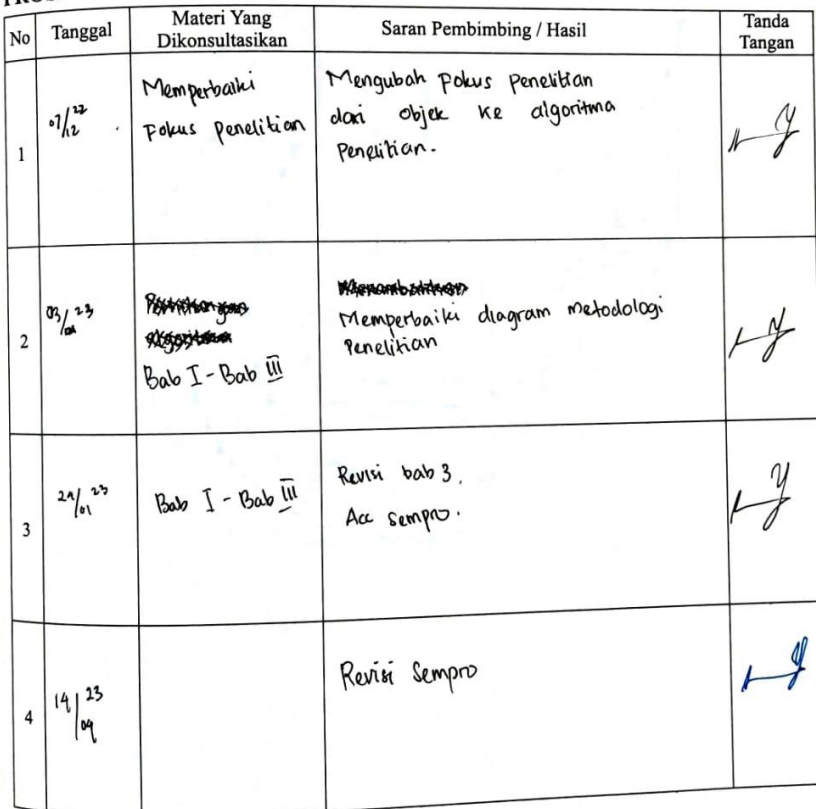 No
Tanggal
Materi Yang
Dikonsultasikan
Saran Pembimbing / Hasil
Tanda
Tangan
1
07/12 22
Memperbaiki
Fokus Penelitian
Mengubah Fokus Penelitian
dari objek ke algoritma
Penelitian.
2
03/01 23
Bab I - Bab III
Memperbaiki diagram metodologi
Penelitian
3
/01 23
Bab I - Bab III
Revisi bab 3.
Acc Sempro.
4
14/09 23
Revisi Sempro